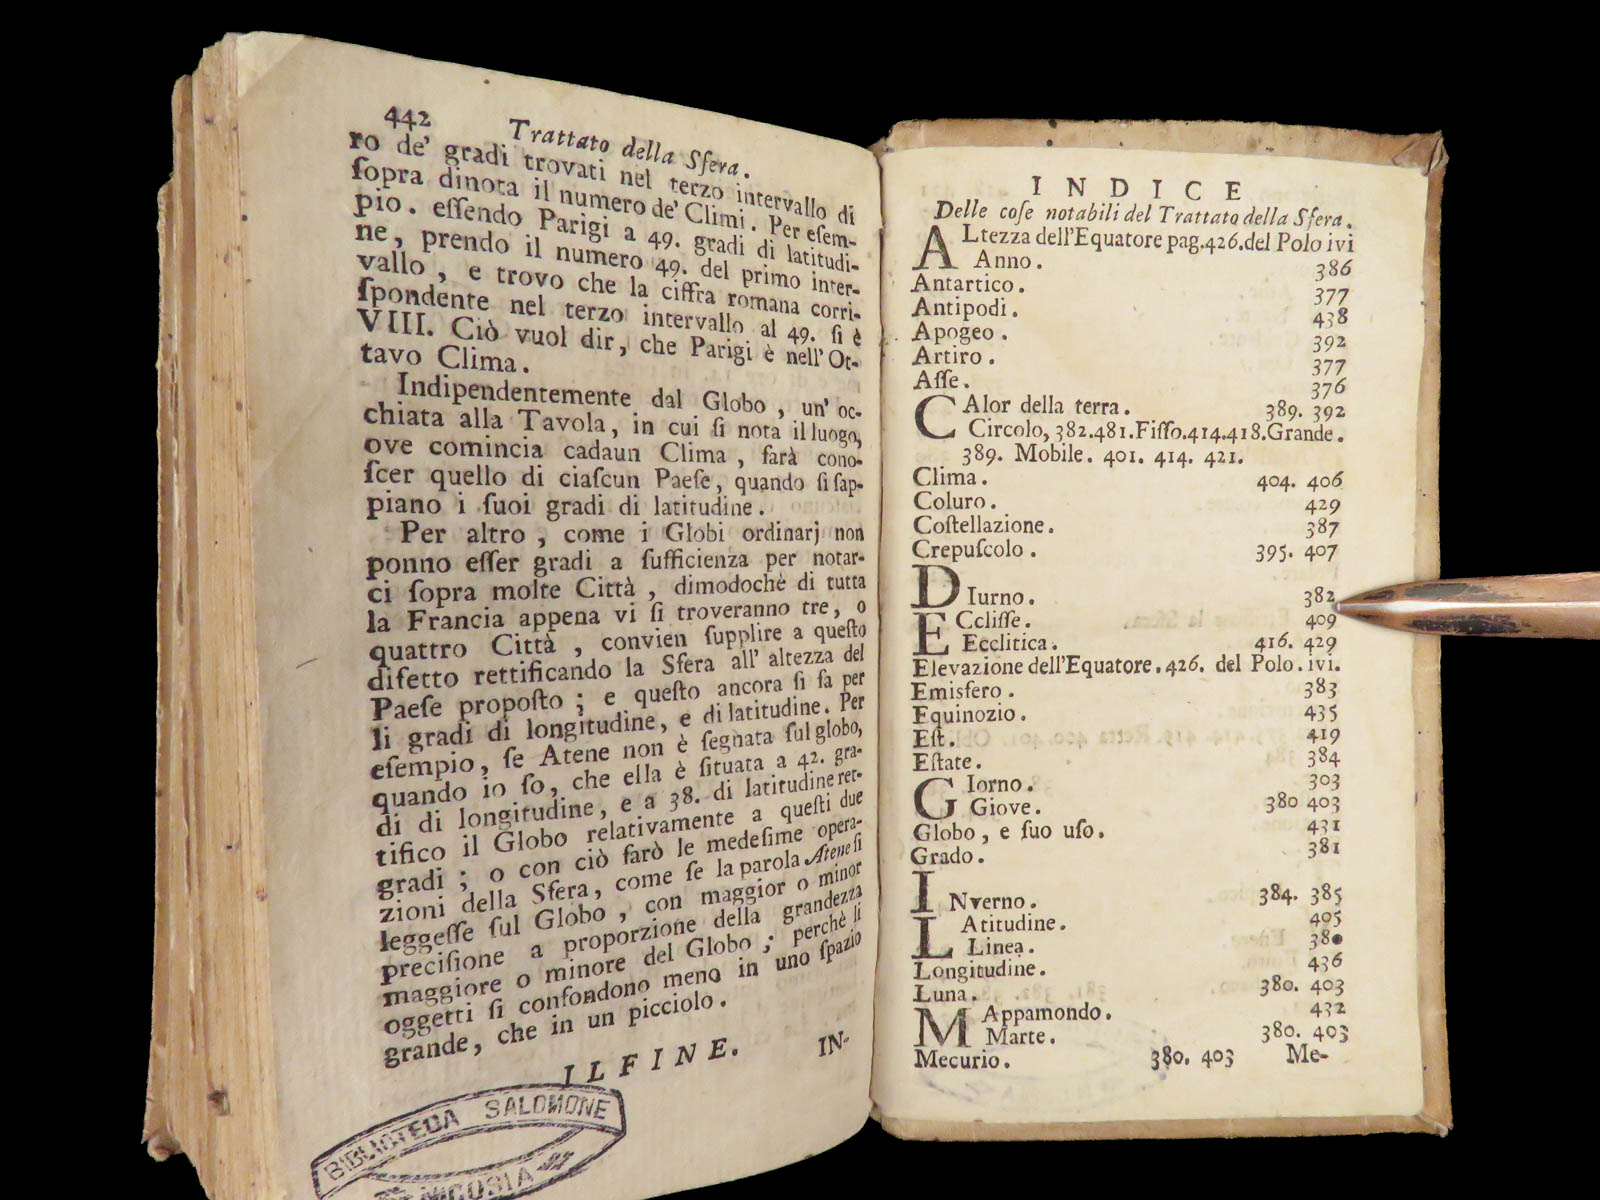 442 Trattato della Sfera.
ro de' gradi trovati nel terzo intervallo di
ſopra dinota il numero de' Climi. Per eſem-
pio. eſſendo Parigi a 49. gradi di latitudi-
ne, prendo il numero 49. del primo inter-
vallo, e trovo che la ciffra romana corri-
ſpondente nel terzo intervallo al 49. ſi è
VIII. Ciò vuol dir, che Parigi è nell' Ot-
tavo Clima.
Indipendentemente dal Globo, un' oc-
chiata alla Tavola, in cui ſi nota il luogo,
ove comincia cadaun Clima, farà cono-
ſcer quello di ciaſcun Paeſe, quando ſi ſap-
piano i ſuoi gradi di latitudine.
Per altro, come i Globi ordinarj non
ponno eſſer gradi a ſufficienza per notar-
ci ſopra molte Città, dimodochè di tutta
la Francia appena vi ſi troveranno tre, o
quattro Città, convien ſupplire a queſto
difetto rettificando la Sfera all' altezza del
Paeſe propoſto; e queſto ancora ſi fa per
li gradi di longitudine, e di latitudine. Per
eſempio, ſe Atene non è ſegnata ſul globo,
quando io ſo, che ella è ſituata a 42. gra-
di di longitudine, e a 38. di latitudine ret-
tifico il Globo relativamente a queſti due
gradi; o con ciò farò le medeſime opera-
zioni della Sfera, come ſe la parola Atene ſi
leggeſſe ſul Globo, con maggior o minor
preciſione a proporzione della grandezza
maggiore o minore del Globo; perchè li
oggetti ſi confondono meno in uno ſpazio
grande, che in un picciolo.
IL FINE. IN-
BIBLIOTECA SALOMONE
NICOSIA
INDICE
Delle coſe notabili del Trattato della Sfera.
ALtezza dell'Equatore pag.426.del Polo ivi
Anno. 386
Antartico. 377
Antipodi. 438
Apogeo. 392
Artiro. 377
Aſſe. 376
CAlor della terra. 389. 392
Circolo, 382.481.Fiſſo.414.418.Grande.
389. Mobile. 401. 414. 421.
Clima. 404. 406
Coluro. 429
Coſtellazione. 387
Crepuſcolo. 395. 407
DIurno. 382
ECcliſſe. 409
Ecclitica. 416. 429
Elevazione dell'Equatore.426. del Polo. ivi.
Emisfero. 383
Equinozio. 435
Eſt. 419
Eſtate. 384
GIorno. 303
Giove. 380 403
Globo, e ſuo uſo. 431
Grado. 381
INverno. 384. 385
LAtitudine. 405
Linea. 380
Longitudine. 436
Luna. 380. 403
MAppamondo. 432
Marte. 380. 403
Mecurio. 380. 403 Me-